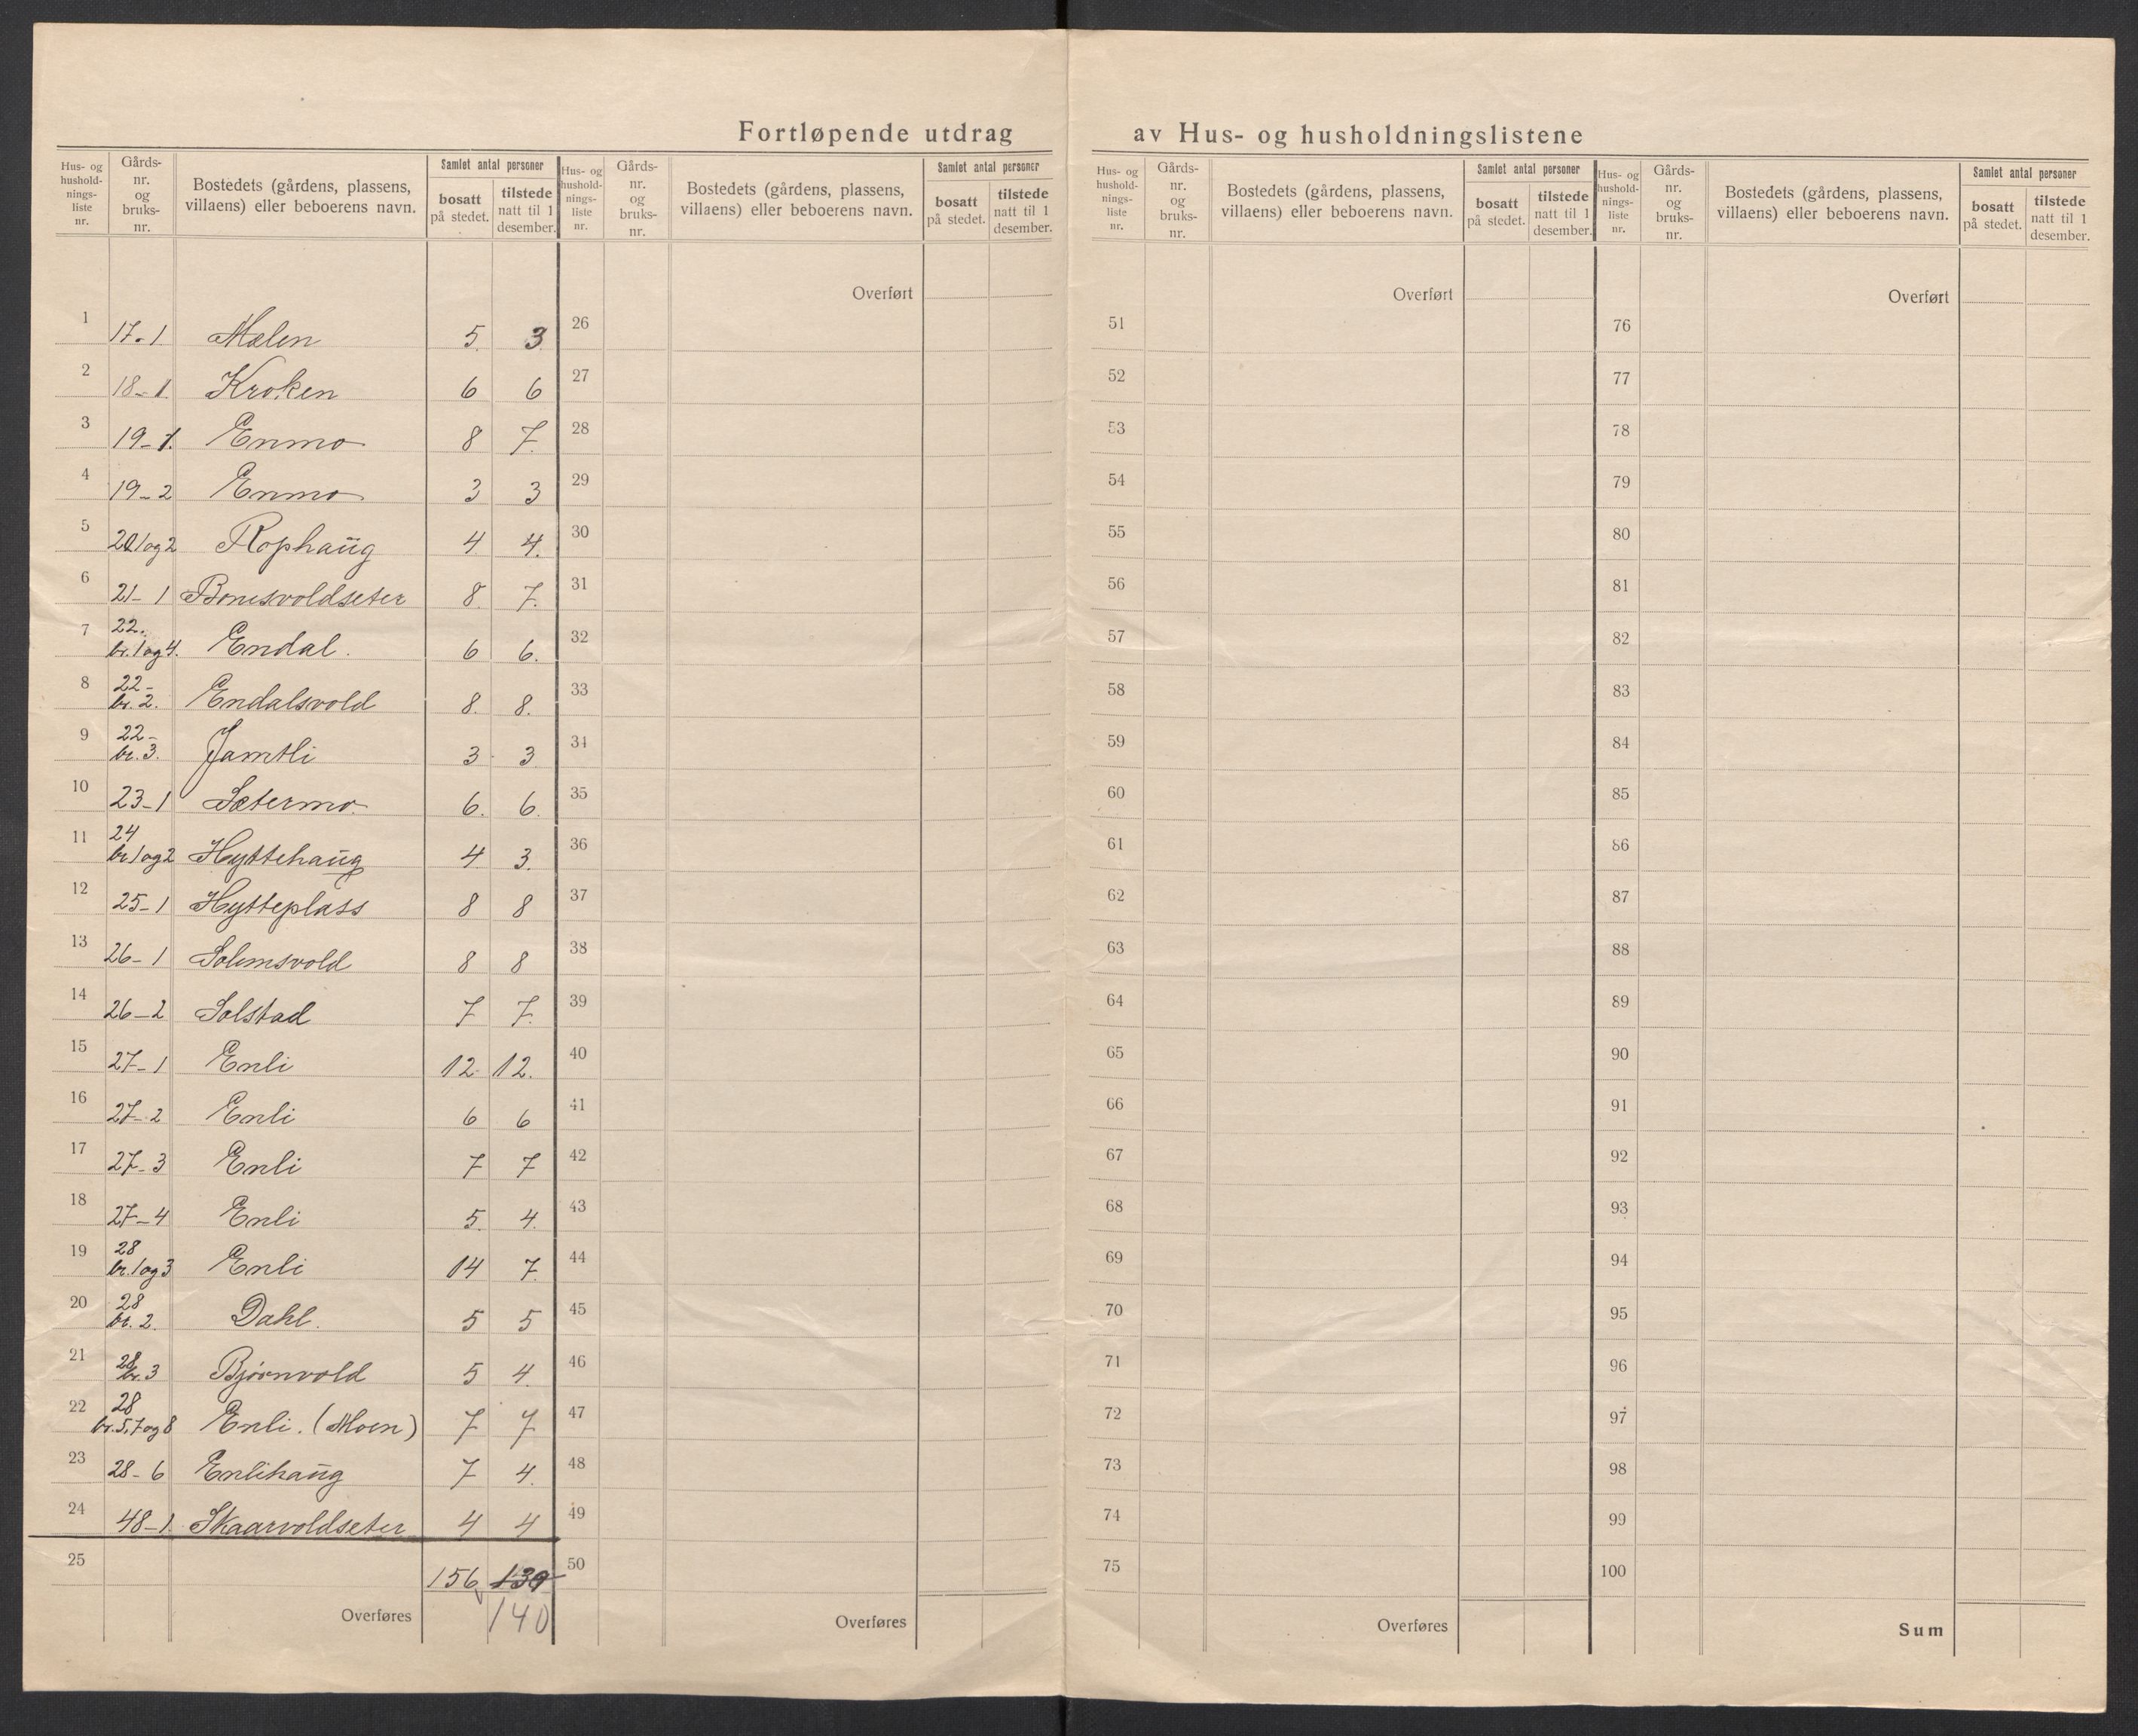 Fortløpende utdrag av Hus- og husholdningslistene
Hus- og hushold-nings-liste nr. | Gårds-nr. og bruks-nr. | Bostedets (gårdens, plassens, villaens) eller beboerens navn. | Samlet antal personer | bosatt på stedet. | tilstede natt til 1 desember.
1 17-1 Mælen 5. 3
2 18-1 Kroken 6 6
3 19-1. Enmo 8 7.
4 19-2 Enmo 3 3
5 20 1og2 Rophaug 4 4.
6 21-1 Bonesvoldseter 8. 7.
7 22. br. 1og4. Endal. 6 6.
8 22- br. 2. Endalsvold 8. 8.
9 22- br. 3. Jamtli 3 3
10 23-1 Sætermo. 6. 6.
11 24 br 1og2 Hyttehaug 4 3.
12 25-1 Hytteplass 8 8
13 26-1 Solemsvold 8 8
14 26-2 Solstad 7 7.
15 27-1 Enli 12 12.
16 27-2 Enli 6 6
17 27-3 Enli 7 7
18 27-4 Enli 5. 4.
19 28 br. 1og3 Enli 14 7.
20 28 br. 2. Dahl. 5 5
21 28 br. 3 Bjørnvold 5 4.
22 28 br. 5,7og8 Enli. (Moen) 7 7
23 28-6 Enlihaug 7 4.
24 48-1 Skaarvoldseter 4 4
25 156 139
Overføres 140
Hus- og hushold-nings-liste nr. | Gårds-nr. og bruks-nr. | Bostedets (gårdens, plassens, villaens) eller beboerens navn. | Samlet antal personer | bosatt på stedet. | tilstede natt til 1 desember.
Overført
26
27
28
29
30
31
32
33
34
35
36
37
38
39
40
41
42
43
44
45
46
47
48
49
50
Overføres
Hus- og hushold-nings-liste nr. | Gårds-nr. og bruks-nr. | Bostedets (gårdens, plassens, villaens) eller beboerens navn. | Samlet antal personer | bosatt på stedet. | tilstede natt til 1 desember.
Overført
51
52
53
54
55
56
57
58
59
60
61
62
63
64
65
66
67
68
69
70
71
72
73
74
75
Overføres
Hus- og hushold-nings-liste nr. | Gårds-nr. og bruks-nr. | Bostedets (gårdens, plassens, villaens) eller beboerens navn. | Samlet antal personer | bosatt på stedet. | tilstede natt til 1 desember.
Overført
76
77
78
79
80
81
82
83
84
85
86
87
88
89
90
91
92
93
94
95
96
97
98
99
100
Sum